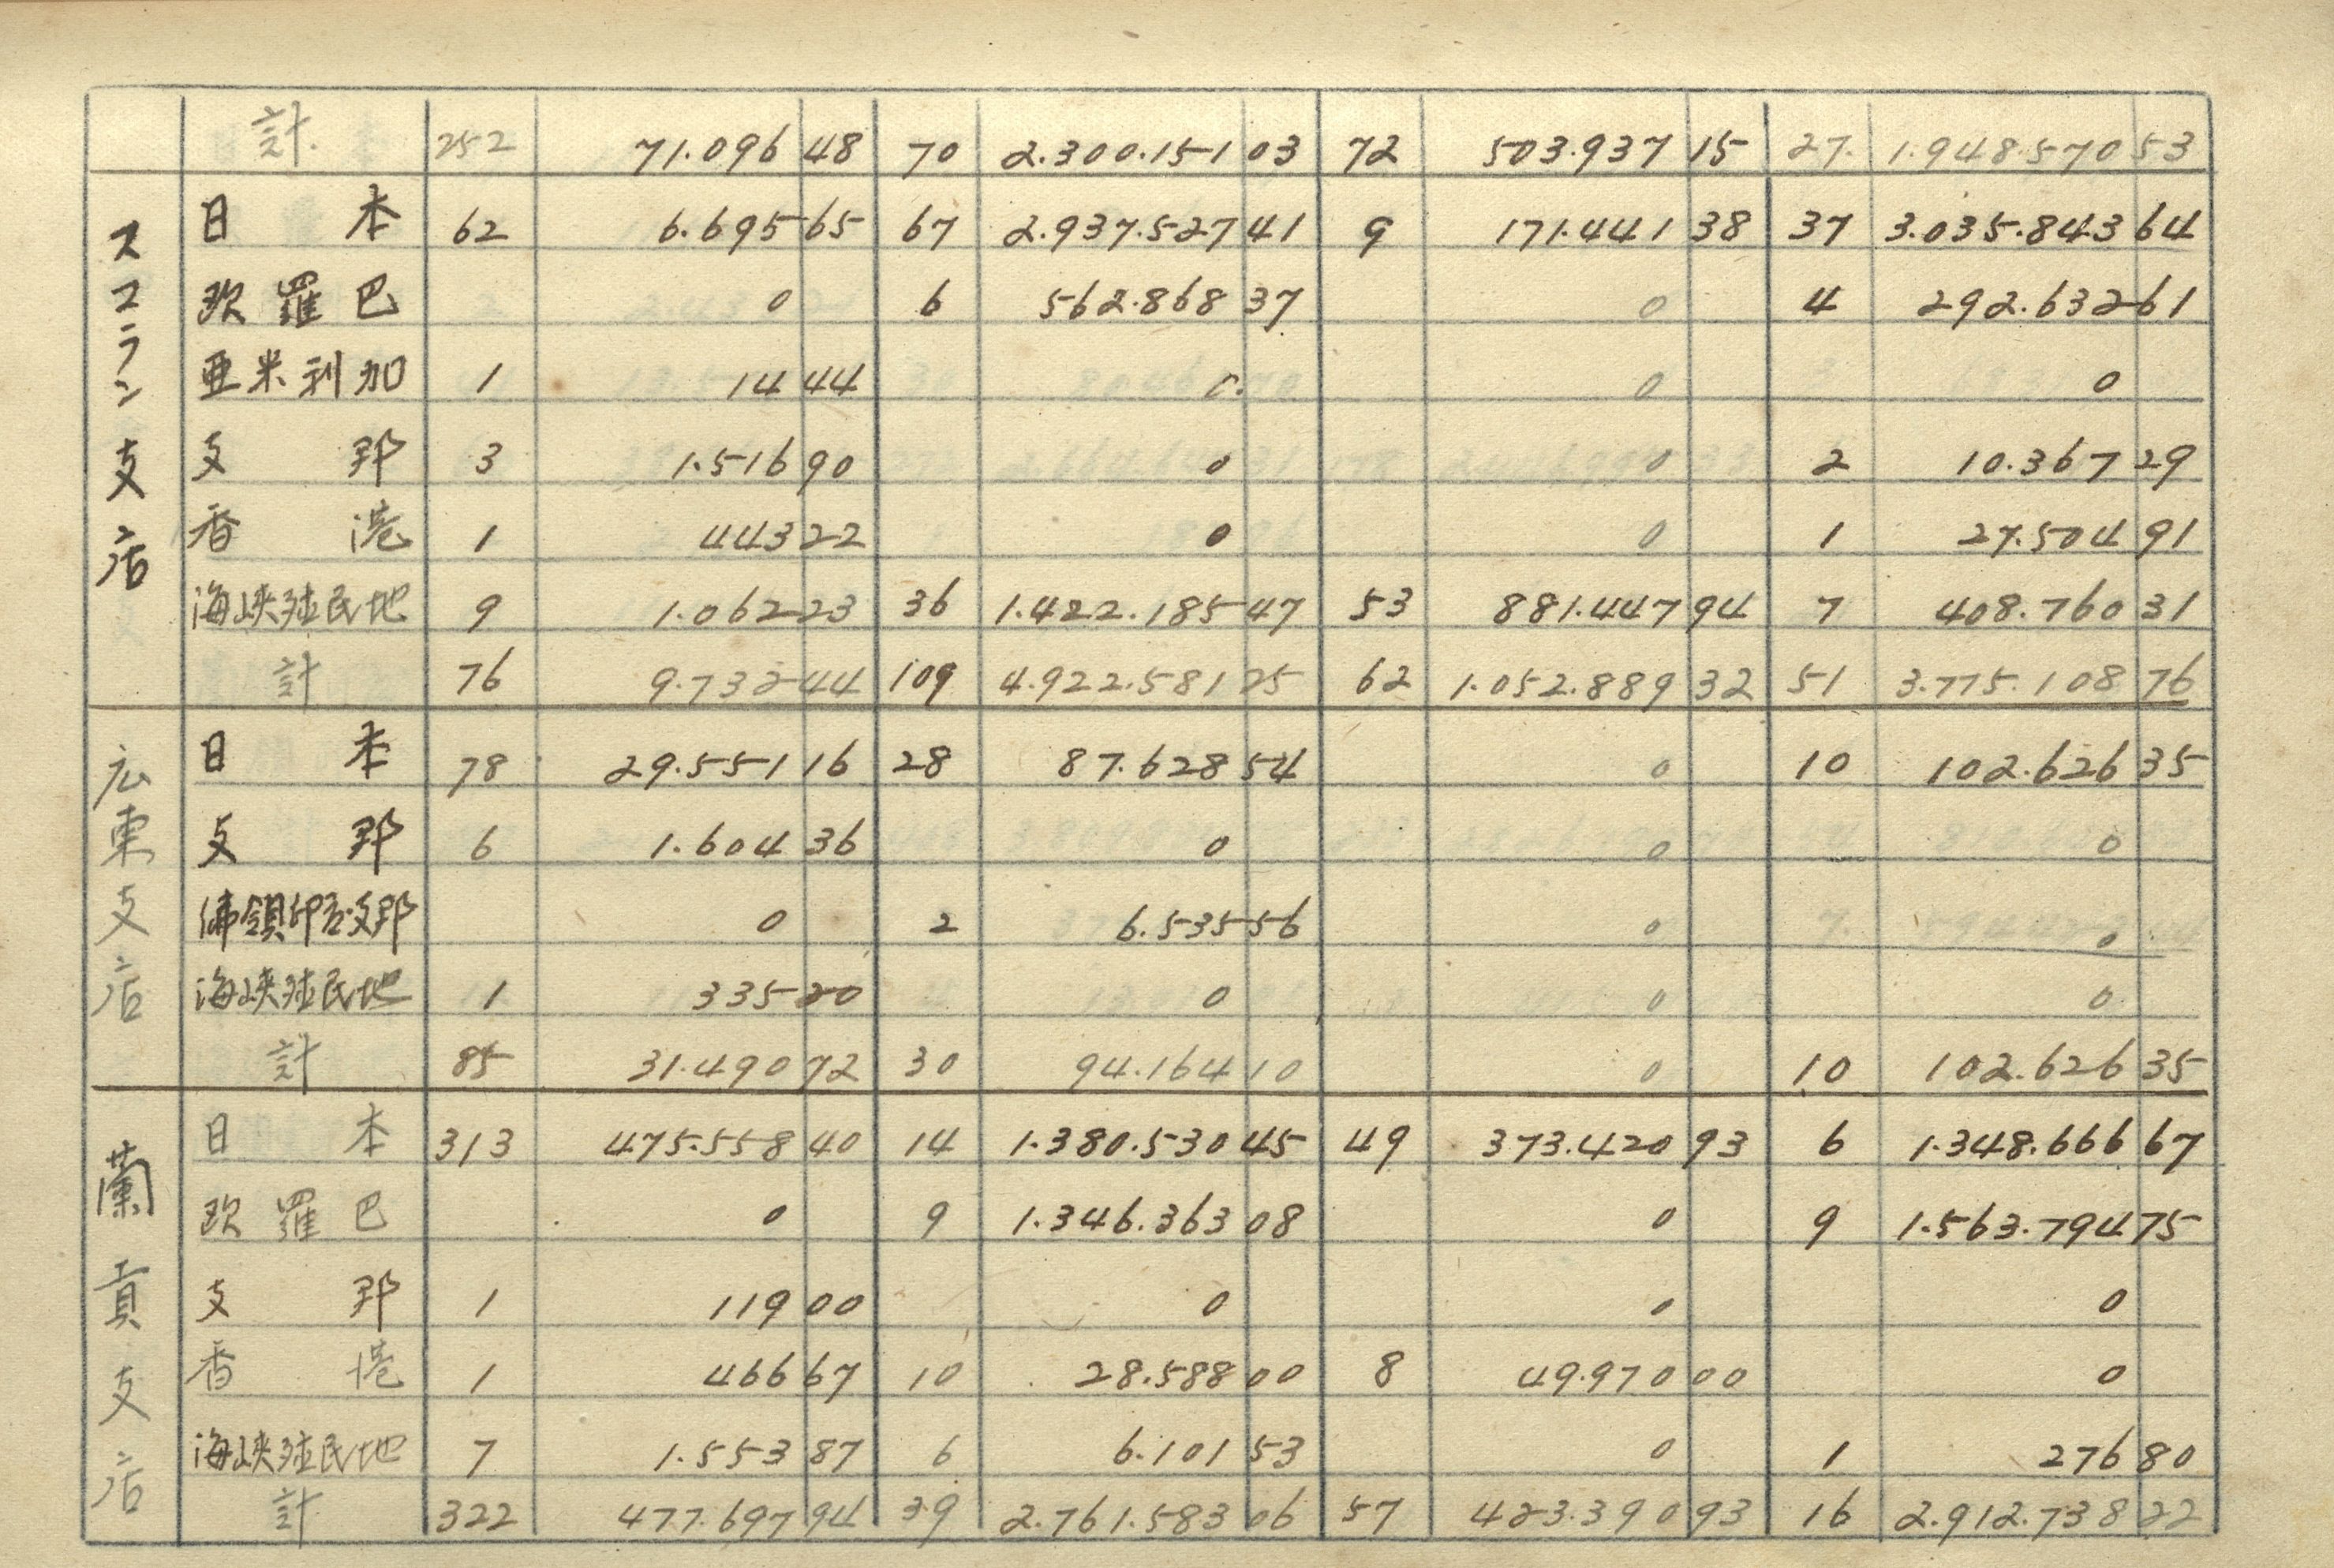 計. 252 71.096 48 70 2.300.151 03 72 503.937 15 27. 1.948.570 53
スマラン支店
日本 62 6.695 65 67 2.937.527 41 9 171.441 38 37 3.035.843 64
欧羅巴 0 6 562.868 37 0 4 292.632 61
亜米利加 1 14 44 0. 0 0
支那 3 1.516 90 0 0 2 10.367 29
香港 1 443 22 0 0 1 27.504 91
海峡殖民地 9 1.062 23 36 1.422.185 47 53 881.447 94 7 408.760 31
計 76 9.732 44 109 4.922.581 25 62 1.052.889 32 51 3.775.108 76
広東支店
日本 78 29.551 16 28 87.628 54 0 10 102.626 35
支那 6 1.604 36 0 0 0
佛領印度支那 0 2 6.535 56 0 0
海峡殖民地 1 335 20 0 0 0
計 85 31.490 72 30 94.164 10 0 10 102.626 35
蘭貢支店
日本 313 475.558 40 14 1.380.530 45 49 373.420 93 6 1.348.666 67
欧羅巴 0 9 1.346.363 08 0 9 1.563.794 75
支那 1 119 00 0 0 0
香港 1 466 67 10 28.588 00 8 49.970 00 0
海峡殖民地 7 1.553 87 6 6.101 53 0 1 276 80
計 322 477.697 94 39 2.761.583 06 57 423.390 93 16 2.912.738 22